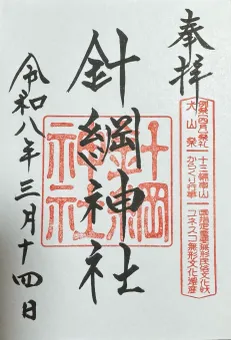 奉拝
創祭(四月)祭礼
犬山祭
十三輌車山
からくり行事
国指定重要無形民俗文化財
ユネスコ無形文化遺産
針綱神社
針綱
神社
令和八年三月十四日